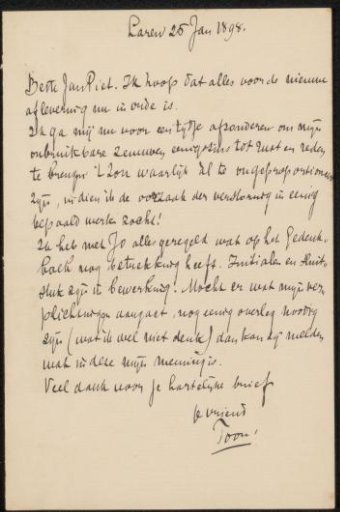 Laren 25 Jan 1898.
Beste Jan Piet. Ik hoop dat alles voor de nieuwe
aflevering nu in orde is.
Ik ga mij nu voor een tijdje afzonderen om mijn
onbruikbare zenuwen eenigszins tot rust en reden
te brengen. 't Zou waarlijk al te ongeproportioneerd
zijn, indien ik de oorzaak der verstooring in eenig
bepaald werk zocht!
Ik heb met Jo alles geregeld wat op het Gedenk-
boek nog betrekking heeft. Initialen en sluit-
stuk zijn in bewerking. Mocht er wat mijn ver-
plichtingen aangaat, nog eenig overleg noodig
zijn (wat ik wel niet denk) dan kan zij melden
wat in deze mijn meening is.
Veel dank voor je hartelijke brief
je vriend
Toon.